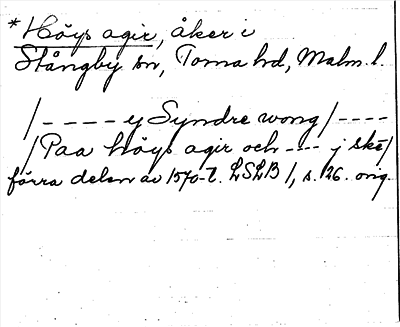 *Höys agir, åker i
Stångby sn, Torna hd, Malm. l.
/---- ej Syndre wong/----
/Paa höys agir och ---- j skě/
förra delen av 1570-t. LSLB 1, s. 126. orig.